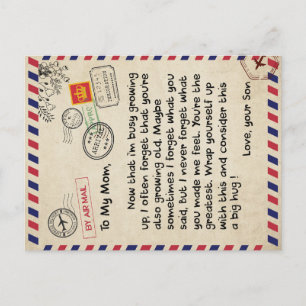 BY AIR MAIL
To My Mom,
Now that i'm busy growing
up, I often forget that you're
also growing old. Maybe
sometimes I forget what you
said, but I never forget what
you made me feel. You're the
greatest. Wrap yourself up
with this and consider this
a big hug !
Love, your Son